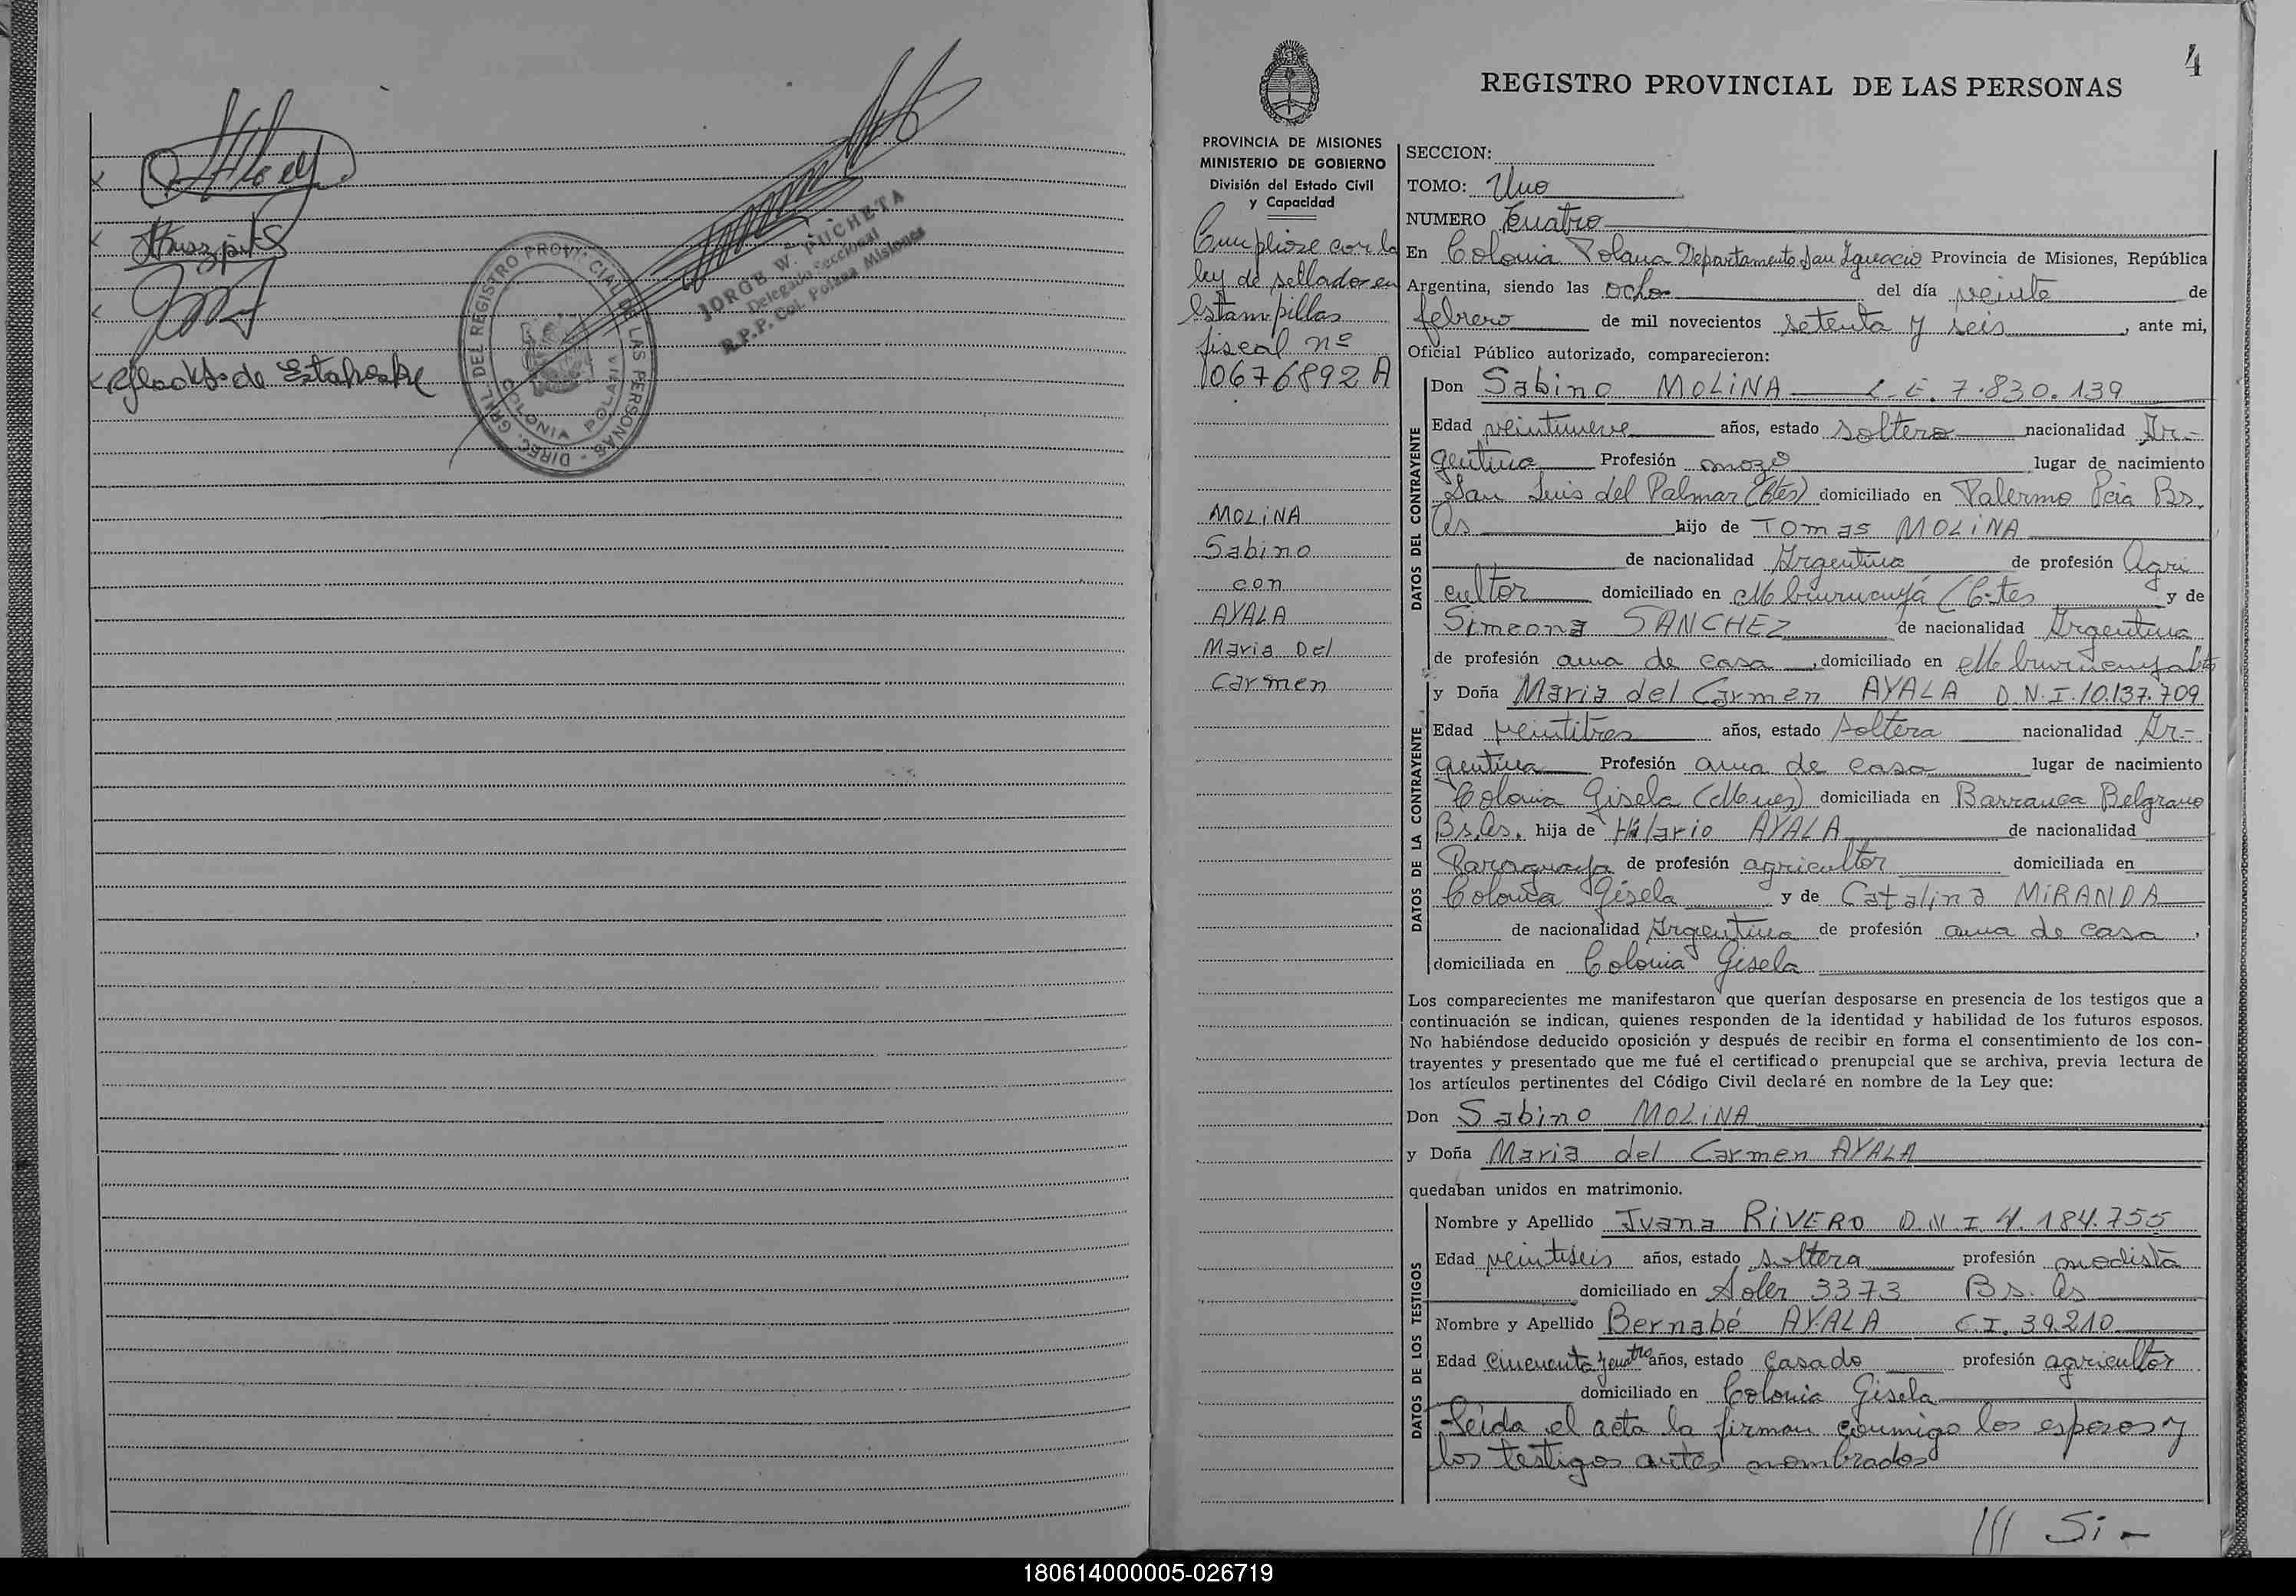 DIREC. GRAL. DEL REGISTRO PROVINCIAL DE LAS PERSONAS
COLONIA POLANA
JORGE W. PUCHETA
Delegado Seccional
R.P.P. Col. Polana Misiones
4
REGISTRO PROVINCIAL DE LAS PERSONAS
PROVINCIA DE MISIONES
MINISTERIO DE GOBIERNO
División del Estado Civil
y Capacidad
Cumpliose con la
ley de sellador en
Estampillas
fiscal nº
10676892 A
MOLINA
Sabino
con
AYALA
Maria Del
Carmen
SECCION:
TOMO: Uno
NUMERO Cuatro
En Colonia Polana Departamento San Ignacio Provincia de Misiones, República
Argentina, siendo las ocho del día veinte de
febrero de mil novecientos setenta y seis, ante mi,
Oficial Público autorizado, comparecieron:
DATOS DEL CONTRAYENTE
Don Sabino MOLINA L.E. 7.830.139
Edad veintinueve años, estado soltero nacionalidad Ar-
gentina Profesión mozo lugar de nacimiento
San Luis del Palmar (Ctes) domiciliado en Palermo Pcia Bs.
As hijo de Tomas MOLINA
de nacionalidad Argentina de profesión Agri
cultor domiciliado en Mburucuyá (C-tes y de
Simeona SANCHEZ de nacionalidad Argentina
de profesión ama de casa, domiciliado en Mburucuya Ctes
DATOS DE LA CONTRAYENTE
y Doña Maria del Carmen AYALA D.N.I. 10.137.709
Edad veintitres años, estado soltera nacionalidad Ar-
gentina Profesión ama de casa lugar de nacimiento
Colonia Gisela (Mnes) domiciliada en Barranca Belgrano
Bs.As. hija de Hilario AYALA de nacionalidad
Paraguaya de profesión agricultor domiciliada en
Colonia Gisela y de Catalina MIRANDA
de nacionalidad Argentina de profesión ama de casa,
domiciliada en Colonia Gisela
Los comparecientes me manifestaron que querían desposarse en presencia de los testigos que a
continuación se indican, quienes responden de la identidad y habilidad de los futuros esposos.
No habiéndose deducido oposición y después de recibir en forma el consentimiento de los con-
trayentes y presentado que me fué el certificado prenupcial que se archiva, previa lectura de
los artículos pertinentes del Código Civil declaré en nombre de la Ley que:
Don Sabino MOLINA
y Doña Maria del Carmen AYALA
quedaban unidos en matrimonio.
DATOS DE LOS TESTIGOS
Nombre y Apellido Juana RIVERO D.N.I 4.184.755
Edad veintiseis años, estado soltera profesión modista
domiciliado en Soler 3373 Bs. As
Nombre y Apellido Bernabé AYALA C.I. 39.210
Edad Cincuenta y cuatro años, estado Casado profesión agricultor
domiciliado en Colonia Gisela
Leida el acta la firman conmigo los esposos y
los testigos antes nombrados
/// Si -
180614000005-026719